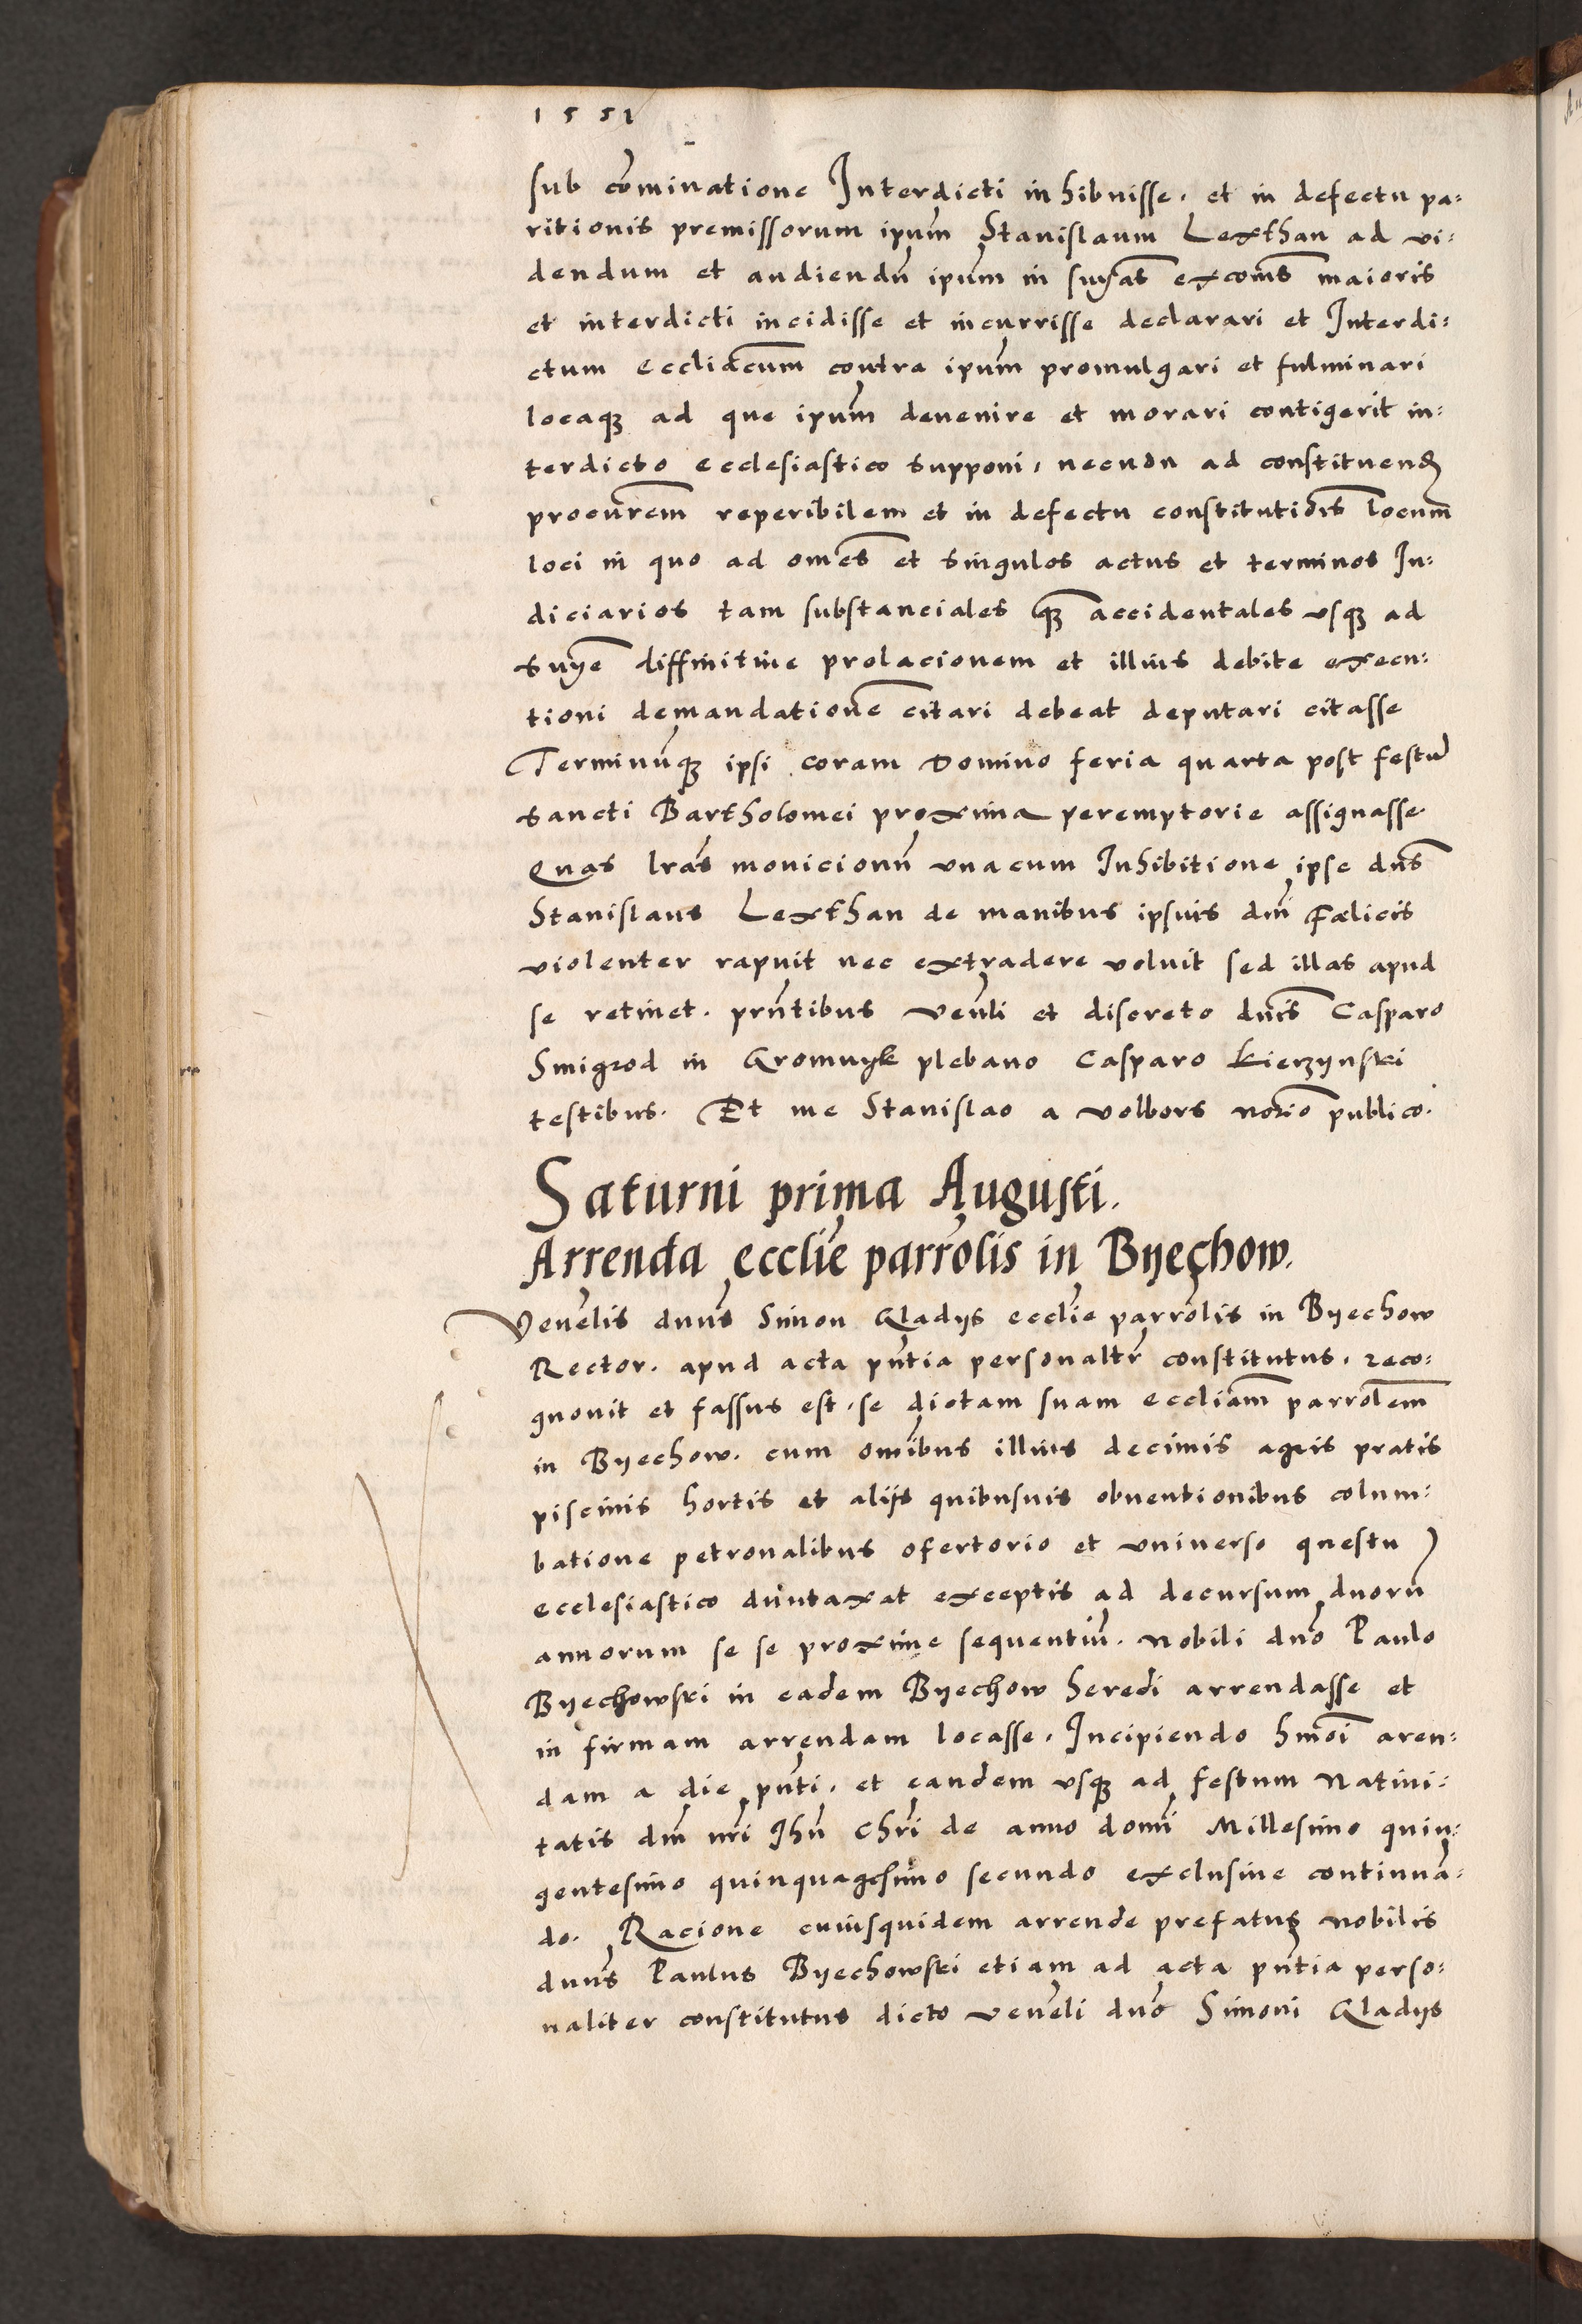 1551
sub cominatione Interdicti inhibuisse. et in defectu pa=
ritionis premissorum ipum Stanislaum Lexthan ad vi=
dendum et audiendu ipum in snyas excoms maioris
et interdicti incidisse et incurrisse declarari et Interdi=
ctum eccliacum contra ipum promulgari et fulminari
locaq ad que ipum devenire et morari contigerit in=
terdicto ecclesiastico supponi, necnon ad constituend
procurem reperibilem et in defectu constitutiois locum
loci in quo ad omes et singulos actus et terminos Iu=
diciarios tam substanciales q accidentales usq ad
snye diffinitiue prolacionem et illius debite execu=
tioni demandatione citari debeat deputari citasse
Terminuq ipsi coram Domino feria quarta post festu
sancti Bartholomei proxima peremptorie assignasse.
Quas lras monicionu unacum Inhibitione ipse dns
Stanislaus Lexthan de manibus ipsius dni Fœlicis
violenter rapuit nec extradere voluit sed illas apud
se retinet. prntibus venli et discreto dnis Casparo
Smigrod in Gromnyk plebano Casparo Kierzynski
testibus. Et me Stanislao a Volbors notrio publico.
Saturni prima Augusti.
Arrenda ecclie parrolis in Byechow.
Venelis dnus Simon Gladys ecclie parrolis in Byechow
Rector. apud acta pntia personaltr constitutus, reco=
gnovit et fassus est, se dictam suam eccliam parrolem
in Byechow. cum omibus illius decimis agris pratis
piscinis hortis et alijs quibusuis obventionibus colum=
batione petronalibus ofertorio et universo questu
ecclesiastico duntaxat exceptis ad decursum duoru
annorum se se proxime sequentiu. Nobili dno Paulo
Byechowski in eadem Byechow heredi arrendasse et
in firmam arrendam locasse. Incipiendo hmoi aren=
dam a die pnti. et eandem usq ad festum Nativi=
tatis dni nri Jhu Chri de anno domi Millesimo quin=
gentesimo quinquagesimo secundo exclusive continua=
do. Racione cuiusquidem arrende prefatus nobilis
dnus Paulus Byechowski etiam ad acta pntia perso=
naliter constitutus dicto veneli dno Simoni Gladys